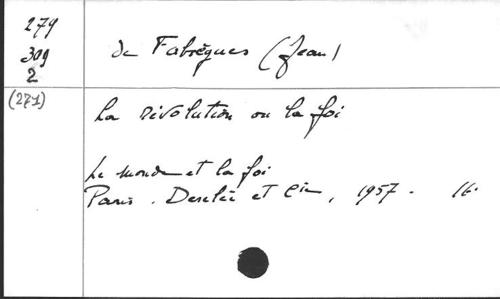 279
309
2
de Fabrègues (Jean)
(271)
La révolution ou la foi
Le monde et la foi
Paris. Desclée et Cie, 1957. 16.